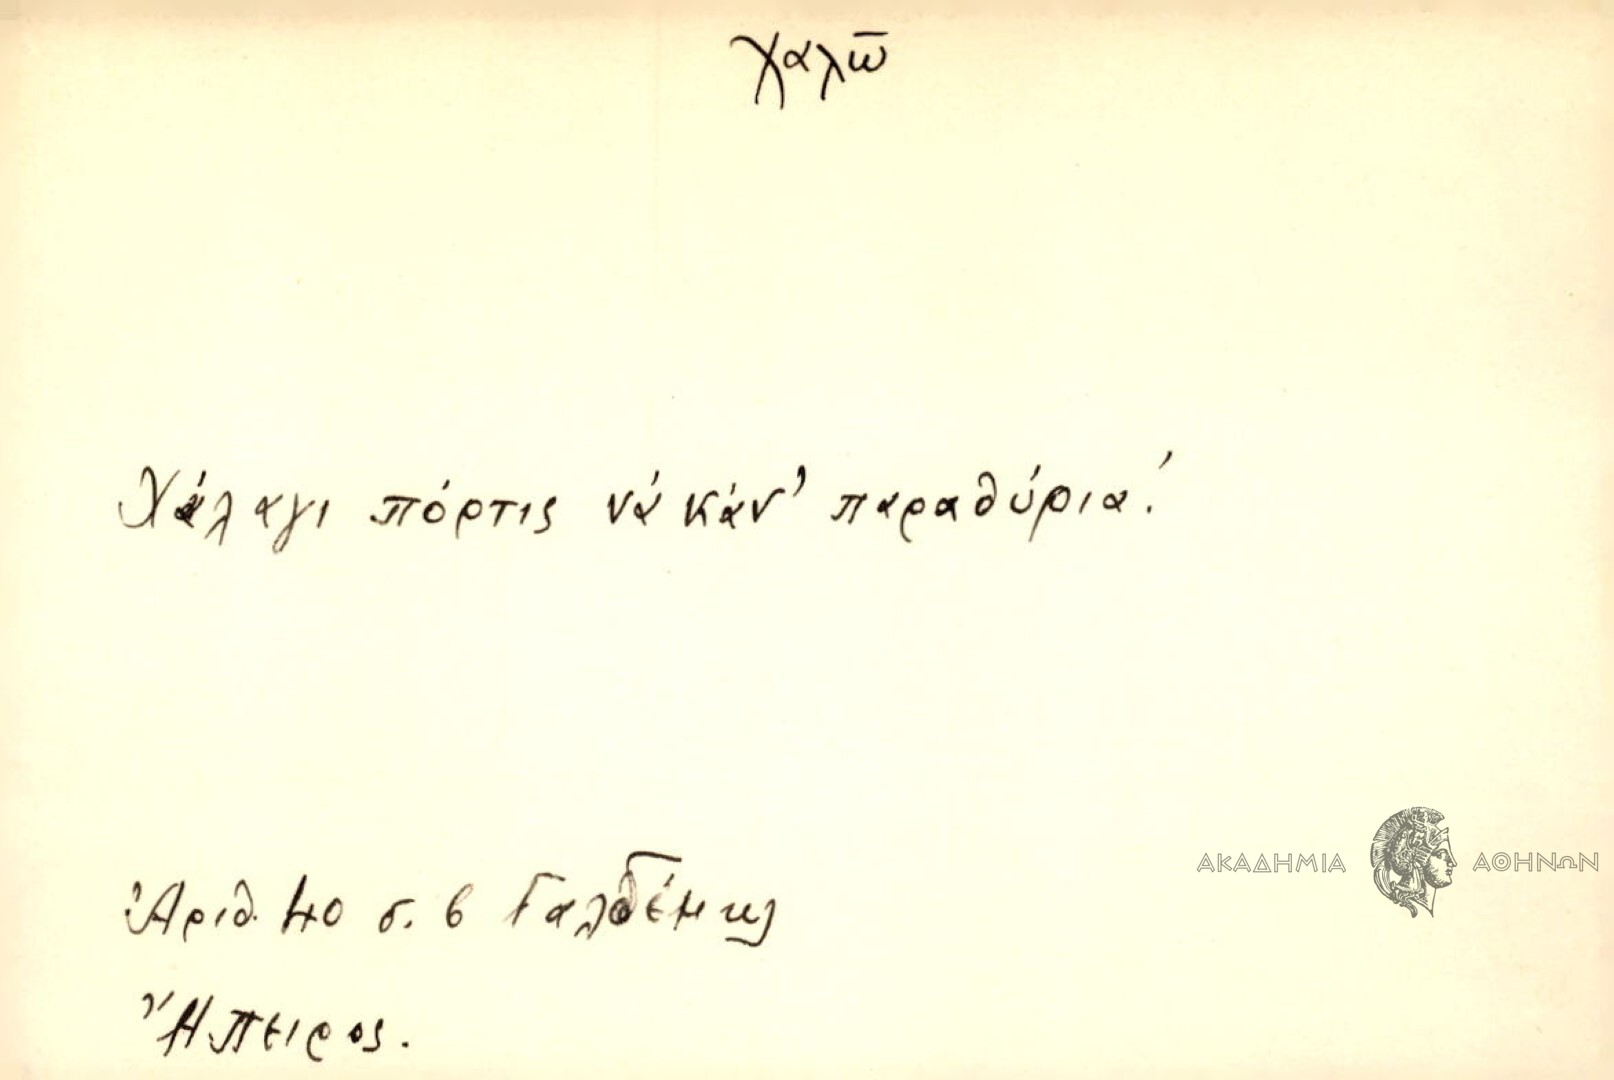 χαλῶ
Χάλαγι πόρτις νά κάν' παραθύρια!
ΑΚΑΔΗΜΙΑ ΑΘΗΝΩΝ
Ἀριθ. 40 σ. 6
Ἤπειρος.